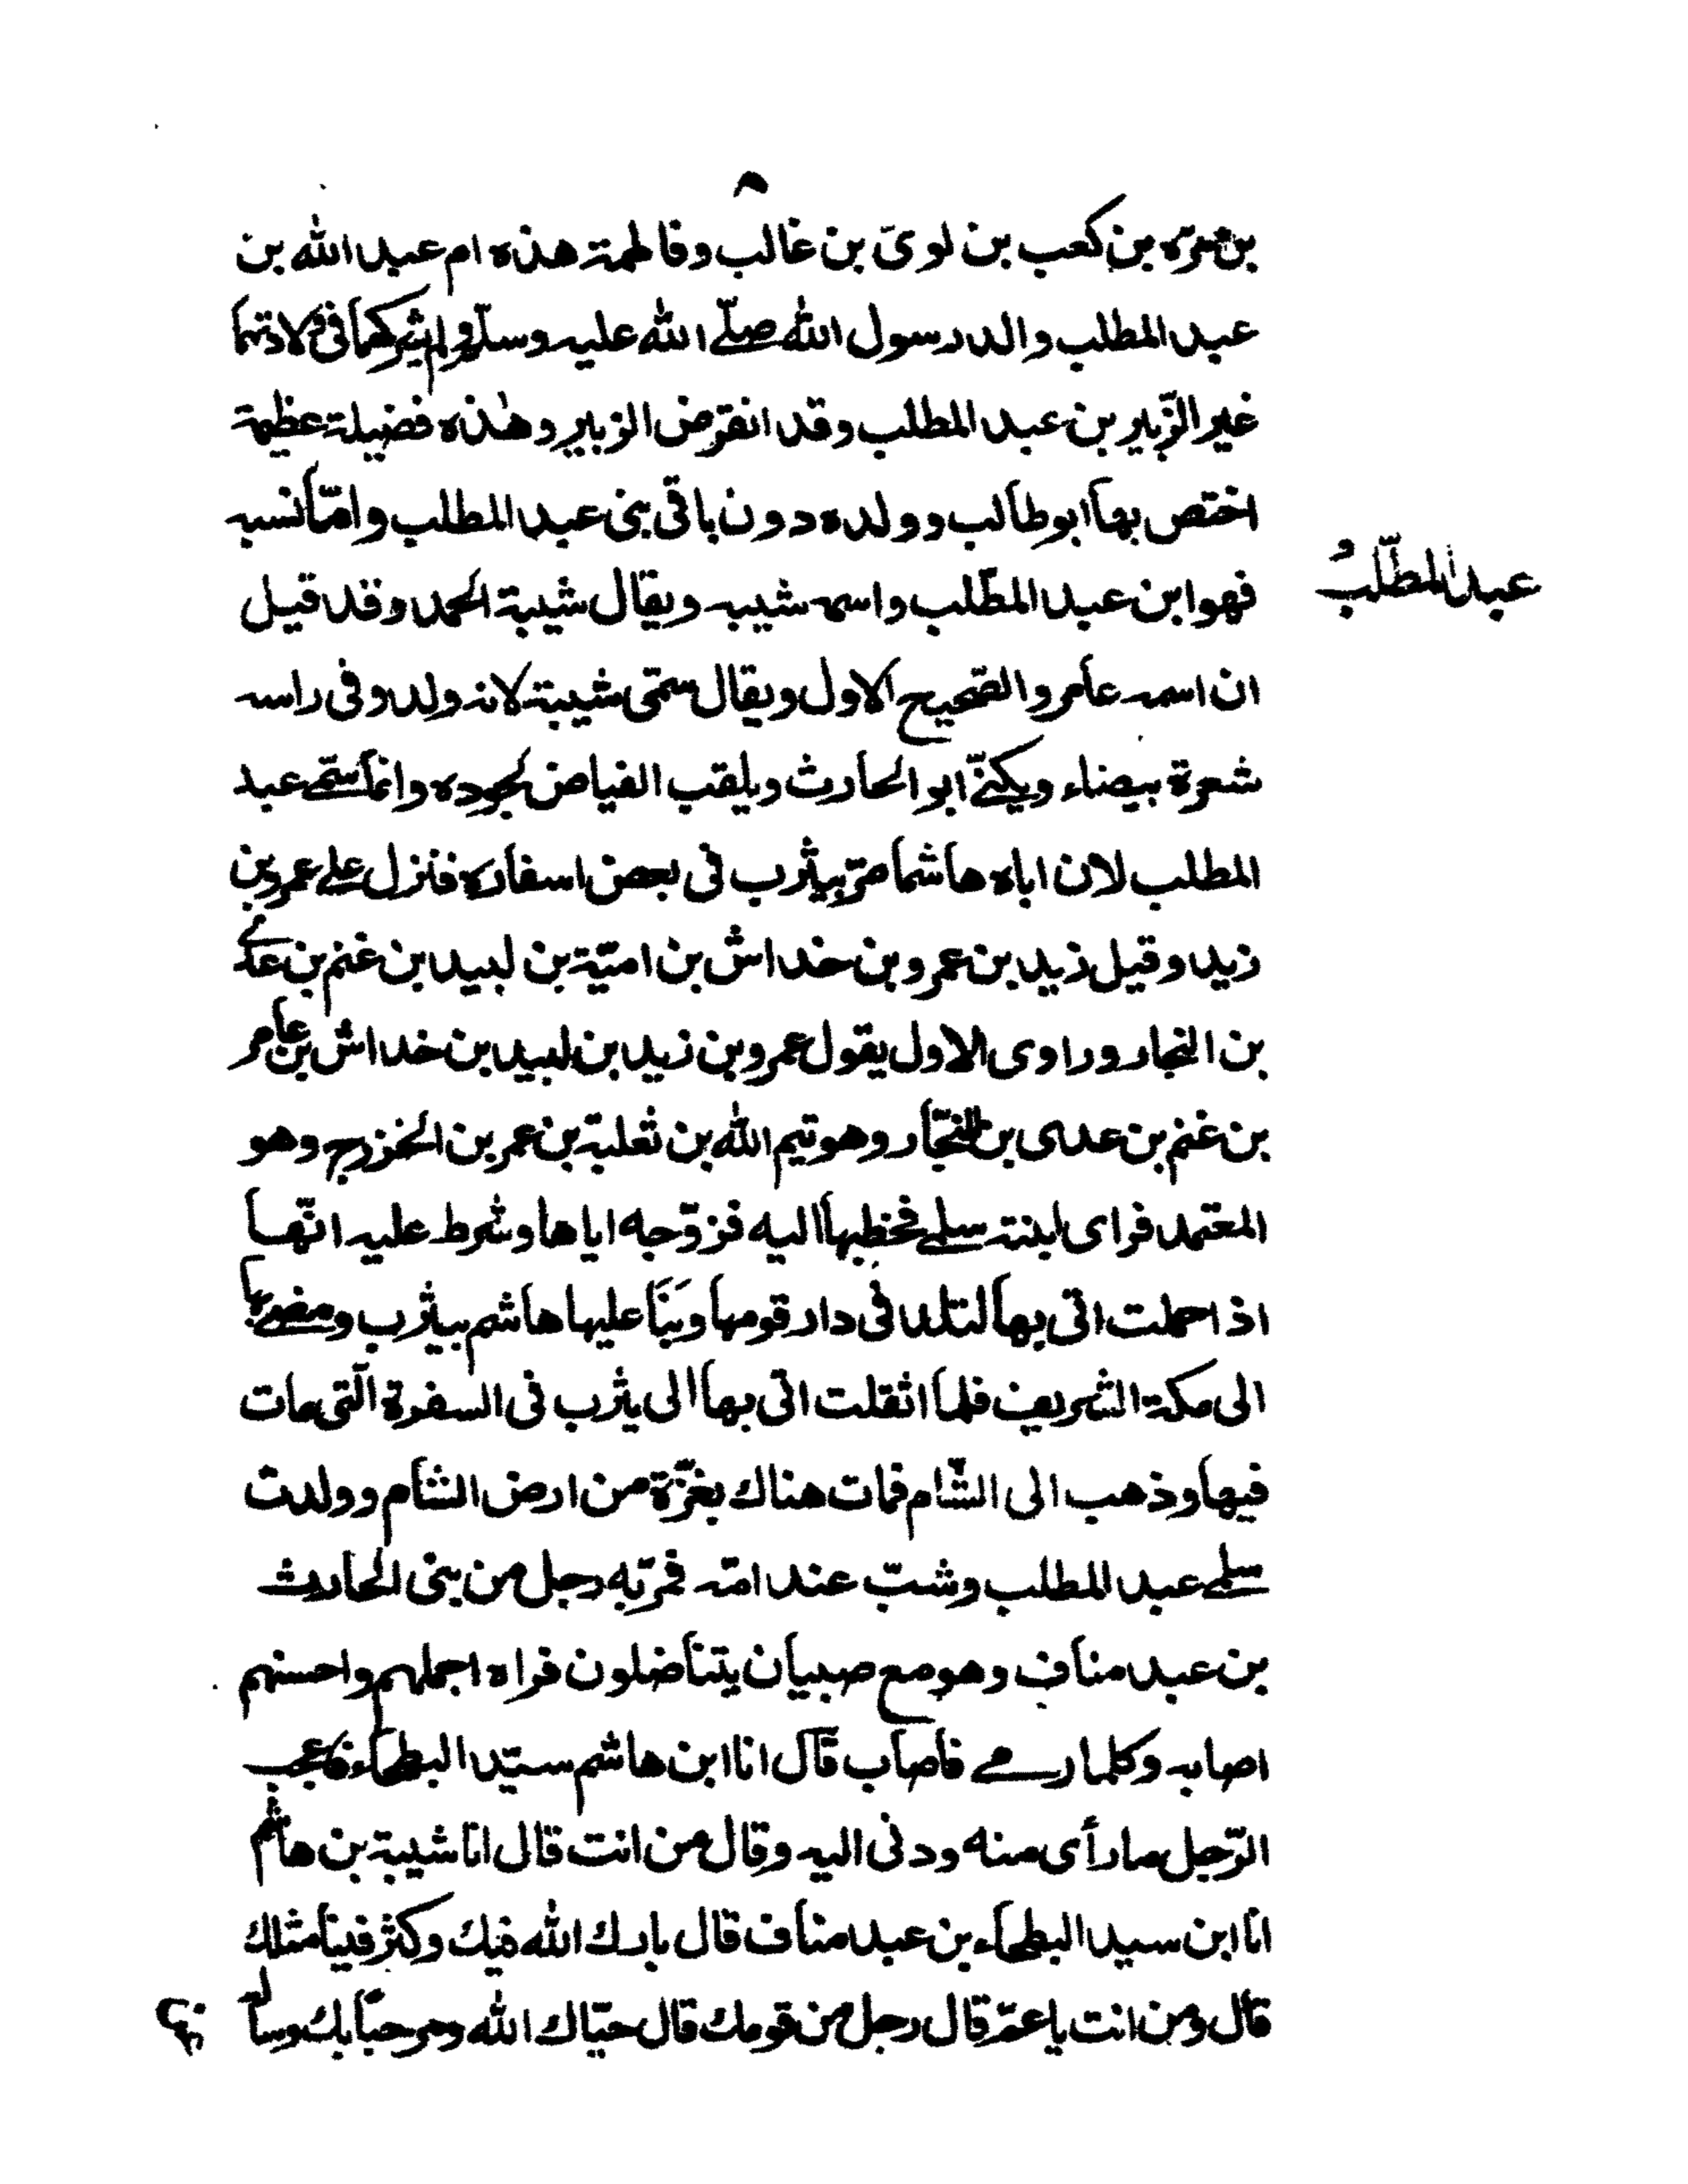 ٨
بن مرّه بن كعب بن لوىَ بن غالب وفاطمة هذه ام عبد الله بن
عبد المطلب والد رسول الله صلّے الله عليه وسلّم ولم يشركهما فى ولادتهما
غير الزّبير بن عبد المطلب وقد انقرض الزبير وهٰذه فضيلة عظيمة
اختص بها ابو طالب وولده دون باقى بنى عبد المطلب وامّا نسبه
فهوا بن عبد المطّلب واسمه شيبه ويقال شيبة الحمد وقد قيل
عبد المطّلبُ
ان اسمه عامر والصّحيح الاول ويقال سمّى شيبة لانه ولد وفى راسه
شعرة بيضاء ويكنّے ابو الحارث ويلقب الفياض لجوده وانما سمّے عبد
المطلب لان اباه هاشما مرّ بيثرب فى بعض اسفاره فنزل علے عمرو بن
زيد وقيل زيد بن عمرو بن خداش بن اميّة بن لبيد بن غنم بن عدے
بن النجار وراوى الاول يقول عمرو بن زيد بن لبيد بن خداش بن عامر
بن غنم بن عدى بن النجّار وهو تيم الله بن ثعلبة بن عمر بن الخزرج وهو
المعتمد فراى ابنته سلمے فخطبها اليه فزوّجه اياها وشرط عليه انّها
اذا حملت اتى بها لتلد فى دار قومها وبَنَا عليها هاشم بيثرب ومضے بها
الى مكة الشريف فلما اثقلت اتى بها الى يثرب فى السفرة الّتى مات
فيها وذهب الى الشّام فمات هناك بغزّة من ارض الشام وولدت
سلمے عبد المطلب وشبّ عند امّه فمرّ به رجل من بنى الحارث
بن عبد مناف وهو مع صبيان يتناضلون فراه اجملهم واحسنهم
اصابه وكلما رمے فاصاب قال انا ابن هاشم سيّد البطحاء فاعجب
الرّجل ما رأى منه ودنى اليه وقال من انت قال انا شيبة بن هاشم
انا ابن سيد البطحاء بن عبد مناف قال بارك الله فيك وكثر فينا مثلك
قال ومن انت يا عمّ قال رجل من قومك قال حيّاك الله ومرحبًا بك وساله